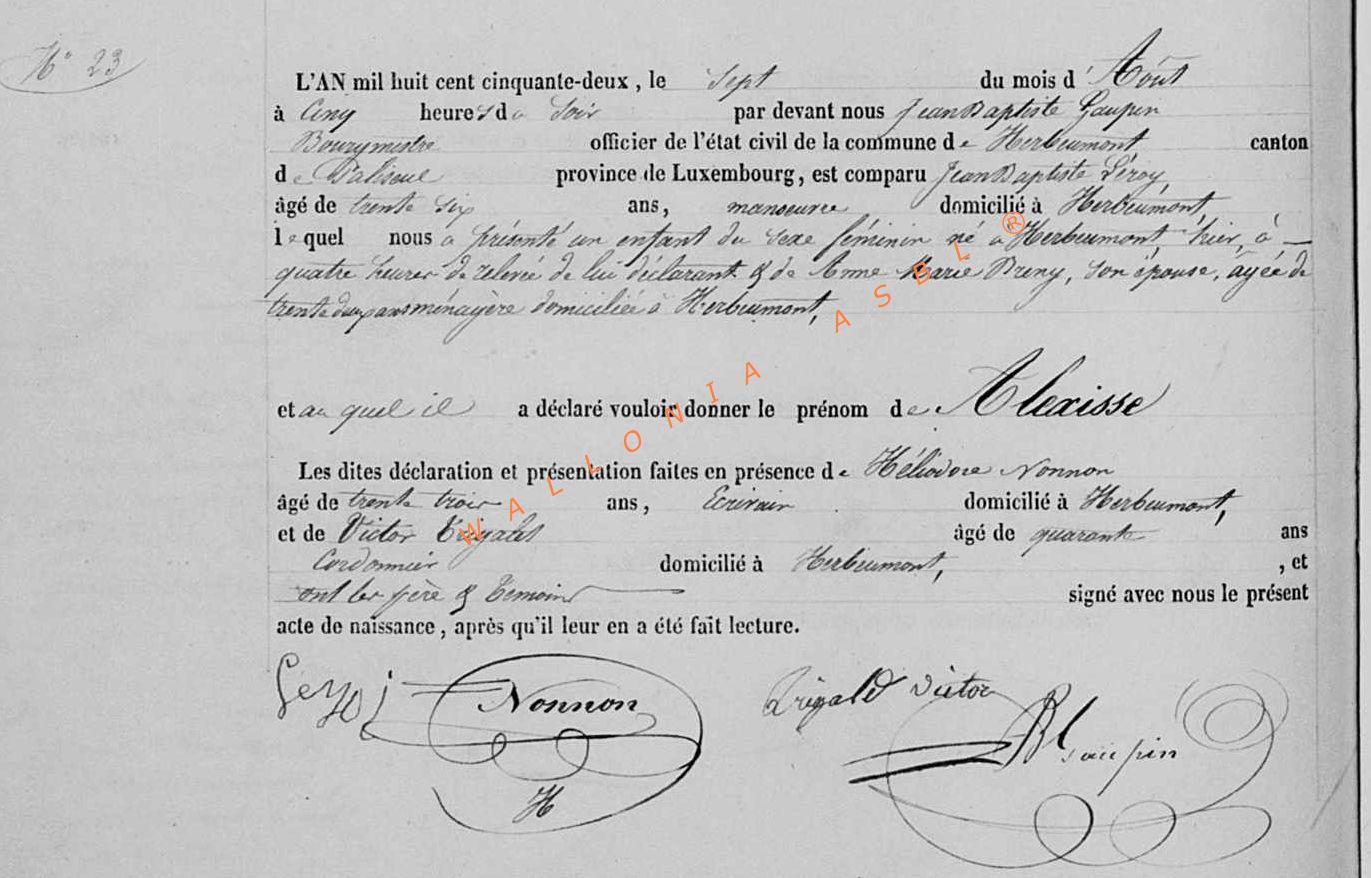 N° 23
L'AN mil huit cent cinquante-deux, le sept du mois d'Août
à cinq heures du soir par devant nous Jean Baptiste Gaupin
Bourgmestre officier de l'état civil de la commune de Herbeumont canton
de Paliseul province de Luxembourg, est comparu Jean Baptiste
âgé de trente six ans, manoeuvre domicilié à Herbeumont,
lequel nous a présenté un enfant du sexe féminin né à Herbeumont, hier, à
quatre heures de relevée de lui déclarant & de Anne Marie Breny, son épouse, âgée de
trente deux ans ménagère domiciliée à Herbeumont,
et au quel il a déclaré vouloir donner le prénom de Alexisse
Les dites déclaration et présentation faites en présence de Héliodore Nonnon
âgé de trente trois ans, Ecrivain domicilié à Herbeumont,
et de Victor âgé de quarante ans
Cordonnier domicilié à Herbeumont, , et
ont les père & témoins signé avec nous le présent
acte de naissance, après qu'il leur en a été fait lecture.
Nonnon victor Gaupin
H
WALLONIA ASBL ®